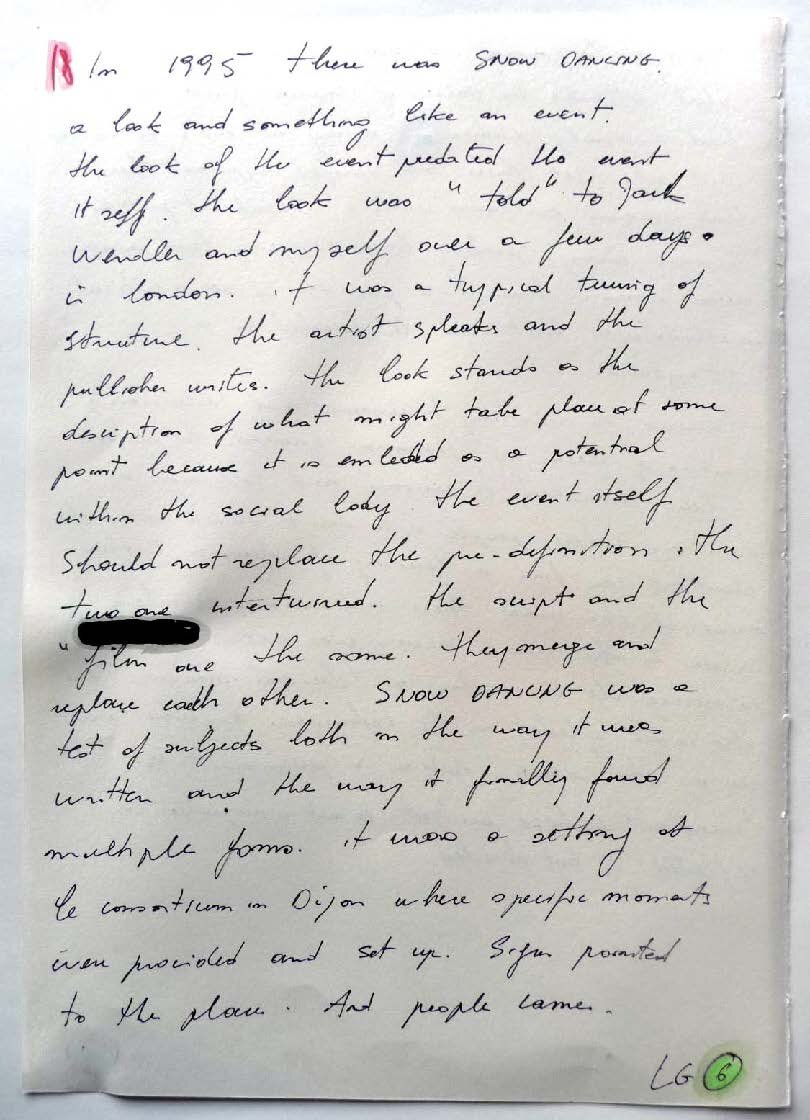 18 In 1995 there was SNOW DANCING.
a book and something like an event.
the book of the event predated the event
itself. the book was "told" to Jack
Wendler and myself over a few days.
in london. it was a typical tuning of
structure. the artist speaks and the
publisher writes. the book stands as the
description of what might take place at some
point because it is embedded as a potential
within the social body. the event itself
should not replace the pre-definition. the
two are intertwined. the script and the
"film are the same. they merge and
replace each other. SNOW DANCING was a
test of subjects both in the way it was
written and the way it finally found
multiple forms. it was a setting at
le consortium in Dijon where specific moments
were provided and set up. Signs pointed
to the place. And people came.
LG 6